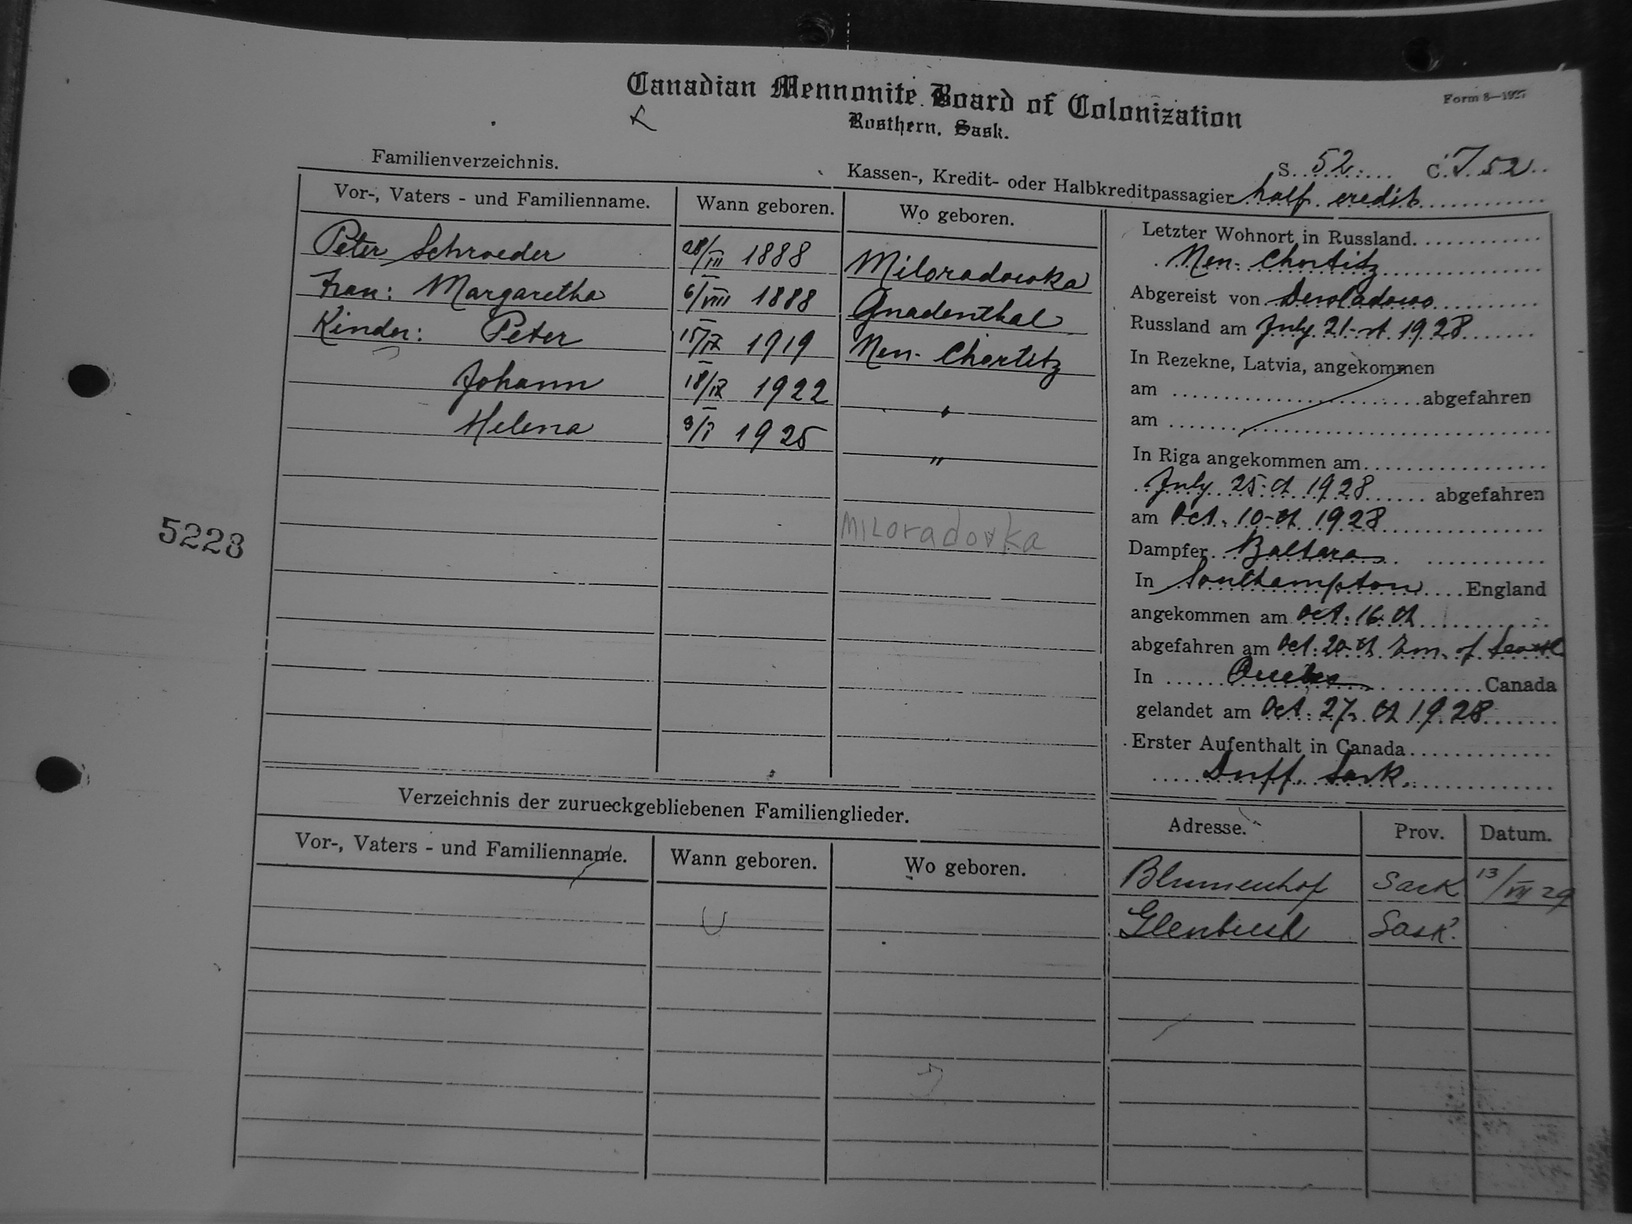 Form 8—1927
Canadian Mennonite Board of Colonization
Rosthern, Sask.
S. 52 C. J 52
Familienverzeichnis.
Kassen-, Kredit- oder Halbkreditpassagier half credit
Vor-, Vaters - und Familienname. Wann geboren. Wo geboren.
Peter Schroeder 28/III 1888 Miloradowka
Frau: Margaretha 6/VIII 1888 Gnadenthal
Kinder: Peter 1919 Neu-Chortitz
Johann 18/IX 1922 "
Helena 1925 "
Miloradovka
5223
Letzter Wohnort in Russland.
Neu-Chortitz
Abgereist von
Russland am July 21-st 1928
In Rezekne, Latvia, angekommen
am abgefahren
am
In Riga angekommen am
July 25-th 1928 abgefahren
am Oct. 10-th 1928
Dampfer Baltara
In Southampton England
angekommen am Oct. 16-th
abgefahren am Oct. 20-th Em. of
In Quebec Canada
gelandet am Oct. 27-th 1928
Erster Aufenthalt in Canada
Duff, Sask.
Verzeichnis der zurueckgebliebenen Familienglieder.
Vor-, Vaters - und Familienname. Wann geboren. Wo geboren.
Adresse. Prov. Datum.
Blumenhof Sask 13/VII 29
Sask.